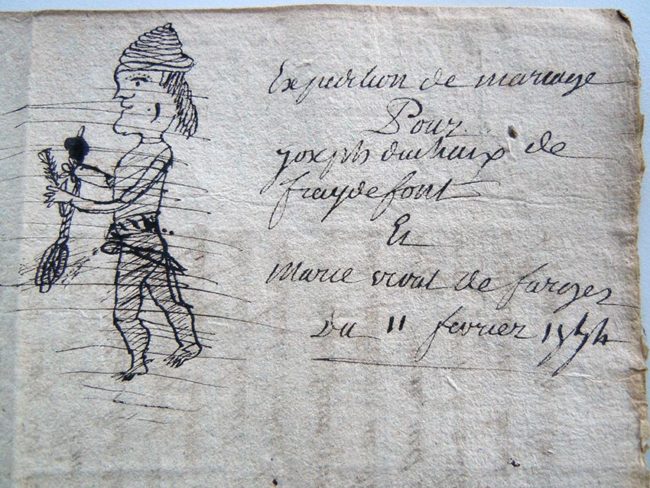 Expedition de mariage
Pour
joseph duchaux de
fraydefont
Et
Marie vival de farges
Du 11 fevrier 1774